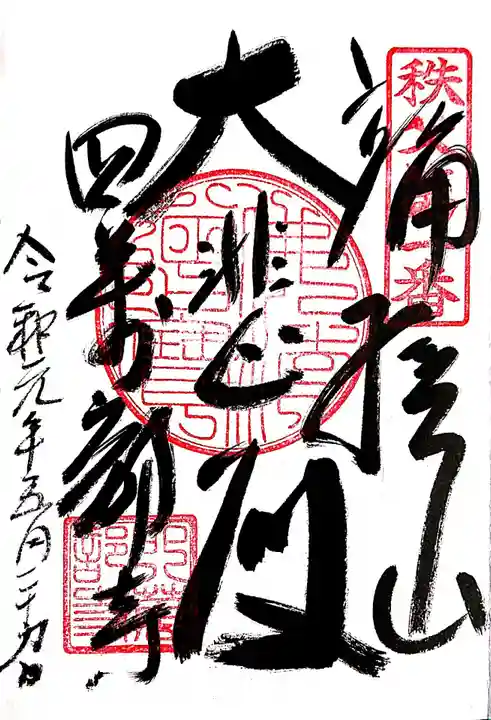 秩父一番
誦経山
大悲殿
四萬部寺
令和元年五月二十九日